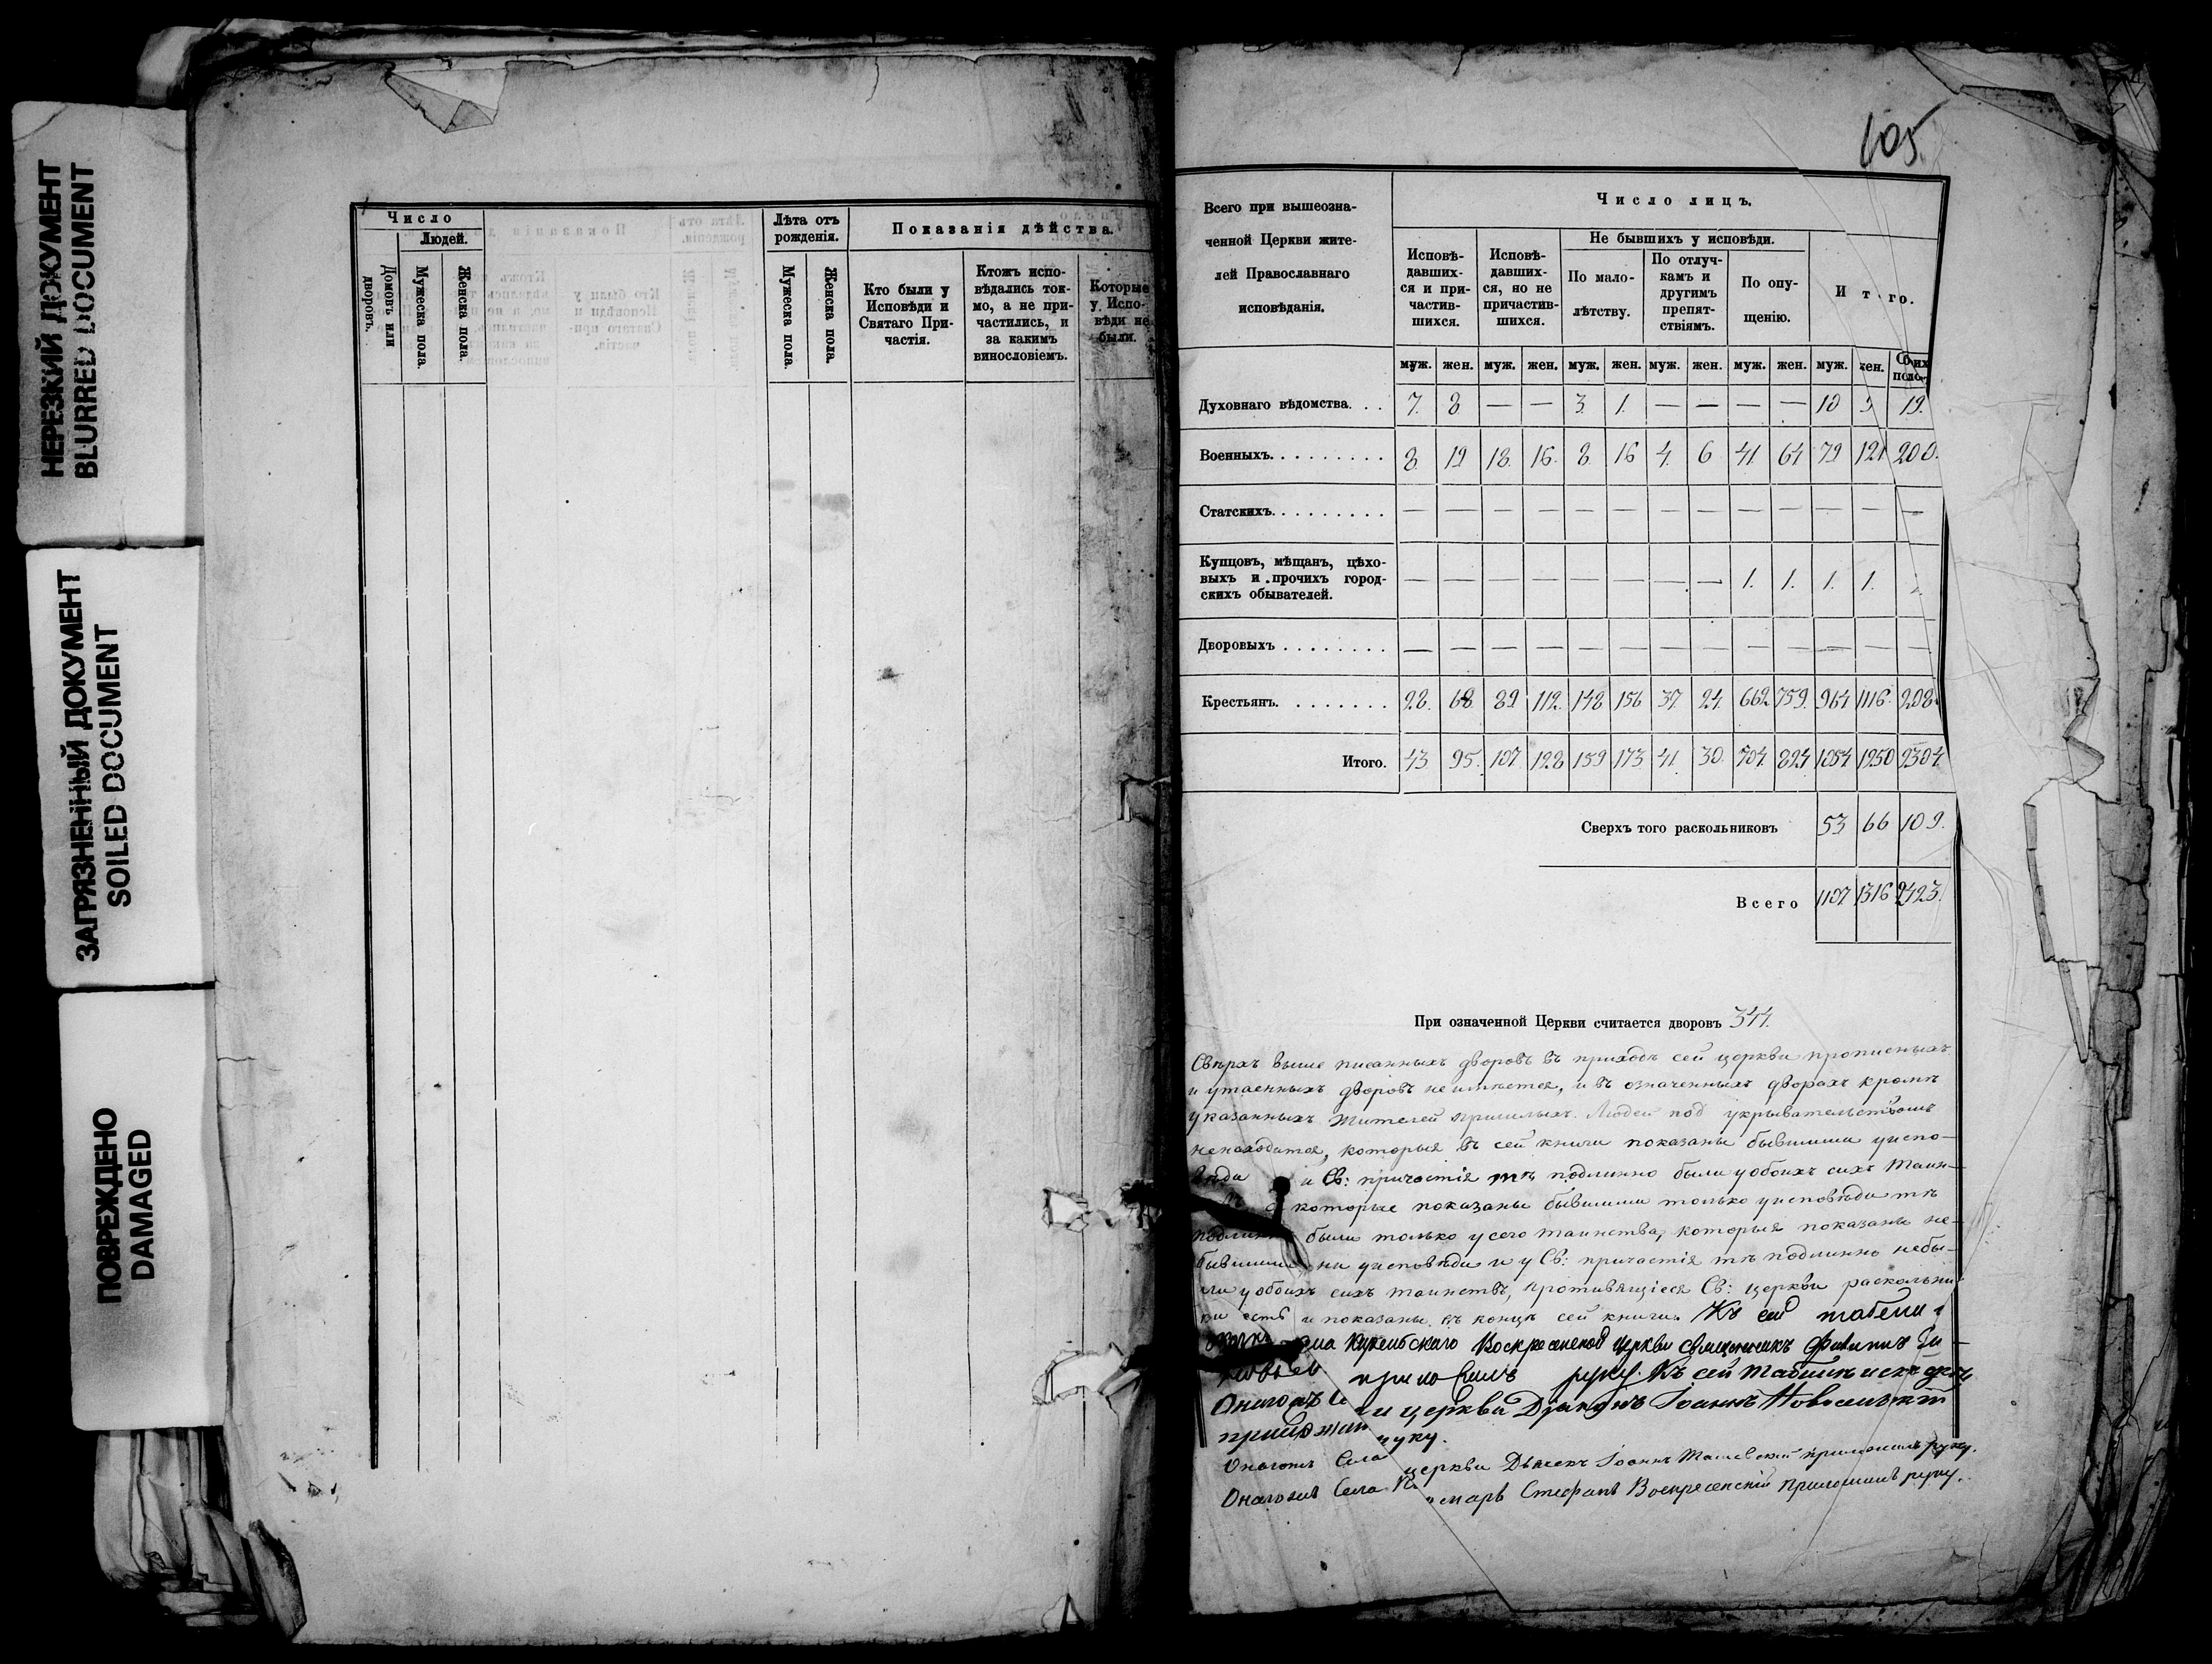 НЕРЕЗКИЙ ДОКУМЕНТ
BLURRED DOCUMENT
ЗАГРЯЗНЕННЫЙ ДОКУМЕНТ
SOILED DOCUMENT
ПОВРЕЖДЕНО
DAMAGED
Число
Людей.
Домовъ или дворовъ.
Мужеска пола.
Женска пола.
Лѣта отъ рожденія.
Мужеска пола
Женска пола.
Показанія дѣйства.
Кто были у Исповѣди и Святаго Причастія.
Ктожъ исповѣдались токмо, а не причастились, и за какимъ винословіемъ.
Которые у Исповѣди не были.
105.
Всего при вышеозначенной Церкви жителей Православнаго исповѣданія.
Число лицъ.
Исповѣдавшихся и причастившихся.
Исповѣдавшихся, но не причастившихся.
Не бывшихъ у исповѣди.
По малолѣтству.
По отлучкамъ и другимъ препятствіямъ.
По опущенію.
Итого.
муж. жен. муж. жен. муж. жен. муж. жен. муж. жен. муж. жен.
Духовнаго вѣдомства. . . 7. 8 — — 3. 1. — — — — 10 9 19.
Военныхъ. . . . . . . . . 8. 19 18. 16. 8. 16 4. 6 41. 64 79 121 200.
Статскихъ. . . . . . . . . — — — — — — — — — — — — —
Купцовъ, мѣщанъ, цѣховыхъ и прочихъ городскихъ обывателей. — — — — — — — — 1. 1. 1. 1.
Дворовыхъ . . . . . . . . — — — — — — — — — — — — —
Крестьянъ. . . . . . . . 28. 68. 89 112. 148 156 37. 24. 662 759. 964 1116. 208
Итого. 43 95. 107 128 159 173 41. 30. 704. 824 1054 1250 2304.
Сверхъ того раскольниковъ 53 66 109.
Всего 1107 1316 2423.
При означенной Церкви считается дворовъ 344.
Свѣрхъ выше писанныхъ дворовъ въ приходѣ сей церкви прописныхъ
и утаенныхъ дворовъ не имѣется, и въ означенныхъ дворахъ кромѣ
указанныхъ жителей пришлыхъ людей подъ укрывательствомъ
ненаходится, которыя въ сей книги показаны бывшими уиспо-
вѣди и Св: причастія тѣ подлинно были у обоихъ сихъ Таин-
которые показаны бывшими только уисповѣди тѣ
подлинно были только у сего таинства, которыя показаны не-
бывшими ни уисповѣди и у Св: причастія тѣ подлинно небы-
ли у обоихъ сихъ таинствъ, противящіеся Св: церкви раскольни-
ки есть и показаны въ концѣ сей книги. Къ сей табели
Воскресенской церкви священникъ Филиппъ
приложилъ руку. Къ сей табели
церкви Діаконъ Іоаннъ Новосельскій
руку.
Онагожъ Села церкви Дьячекъ Іоаннъ приложилъ руку.
Онагожъ Села Стефанъ Воскресенскій приложилъ руку.